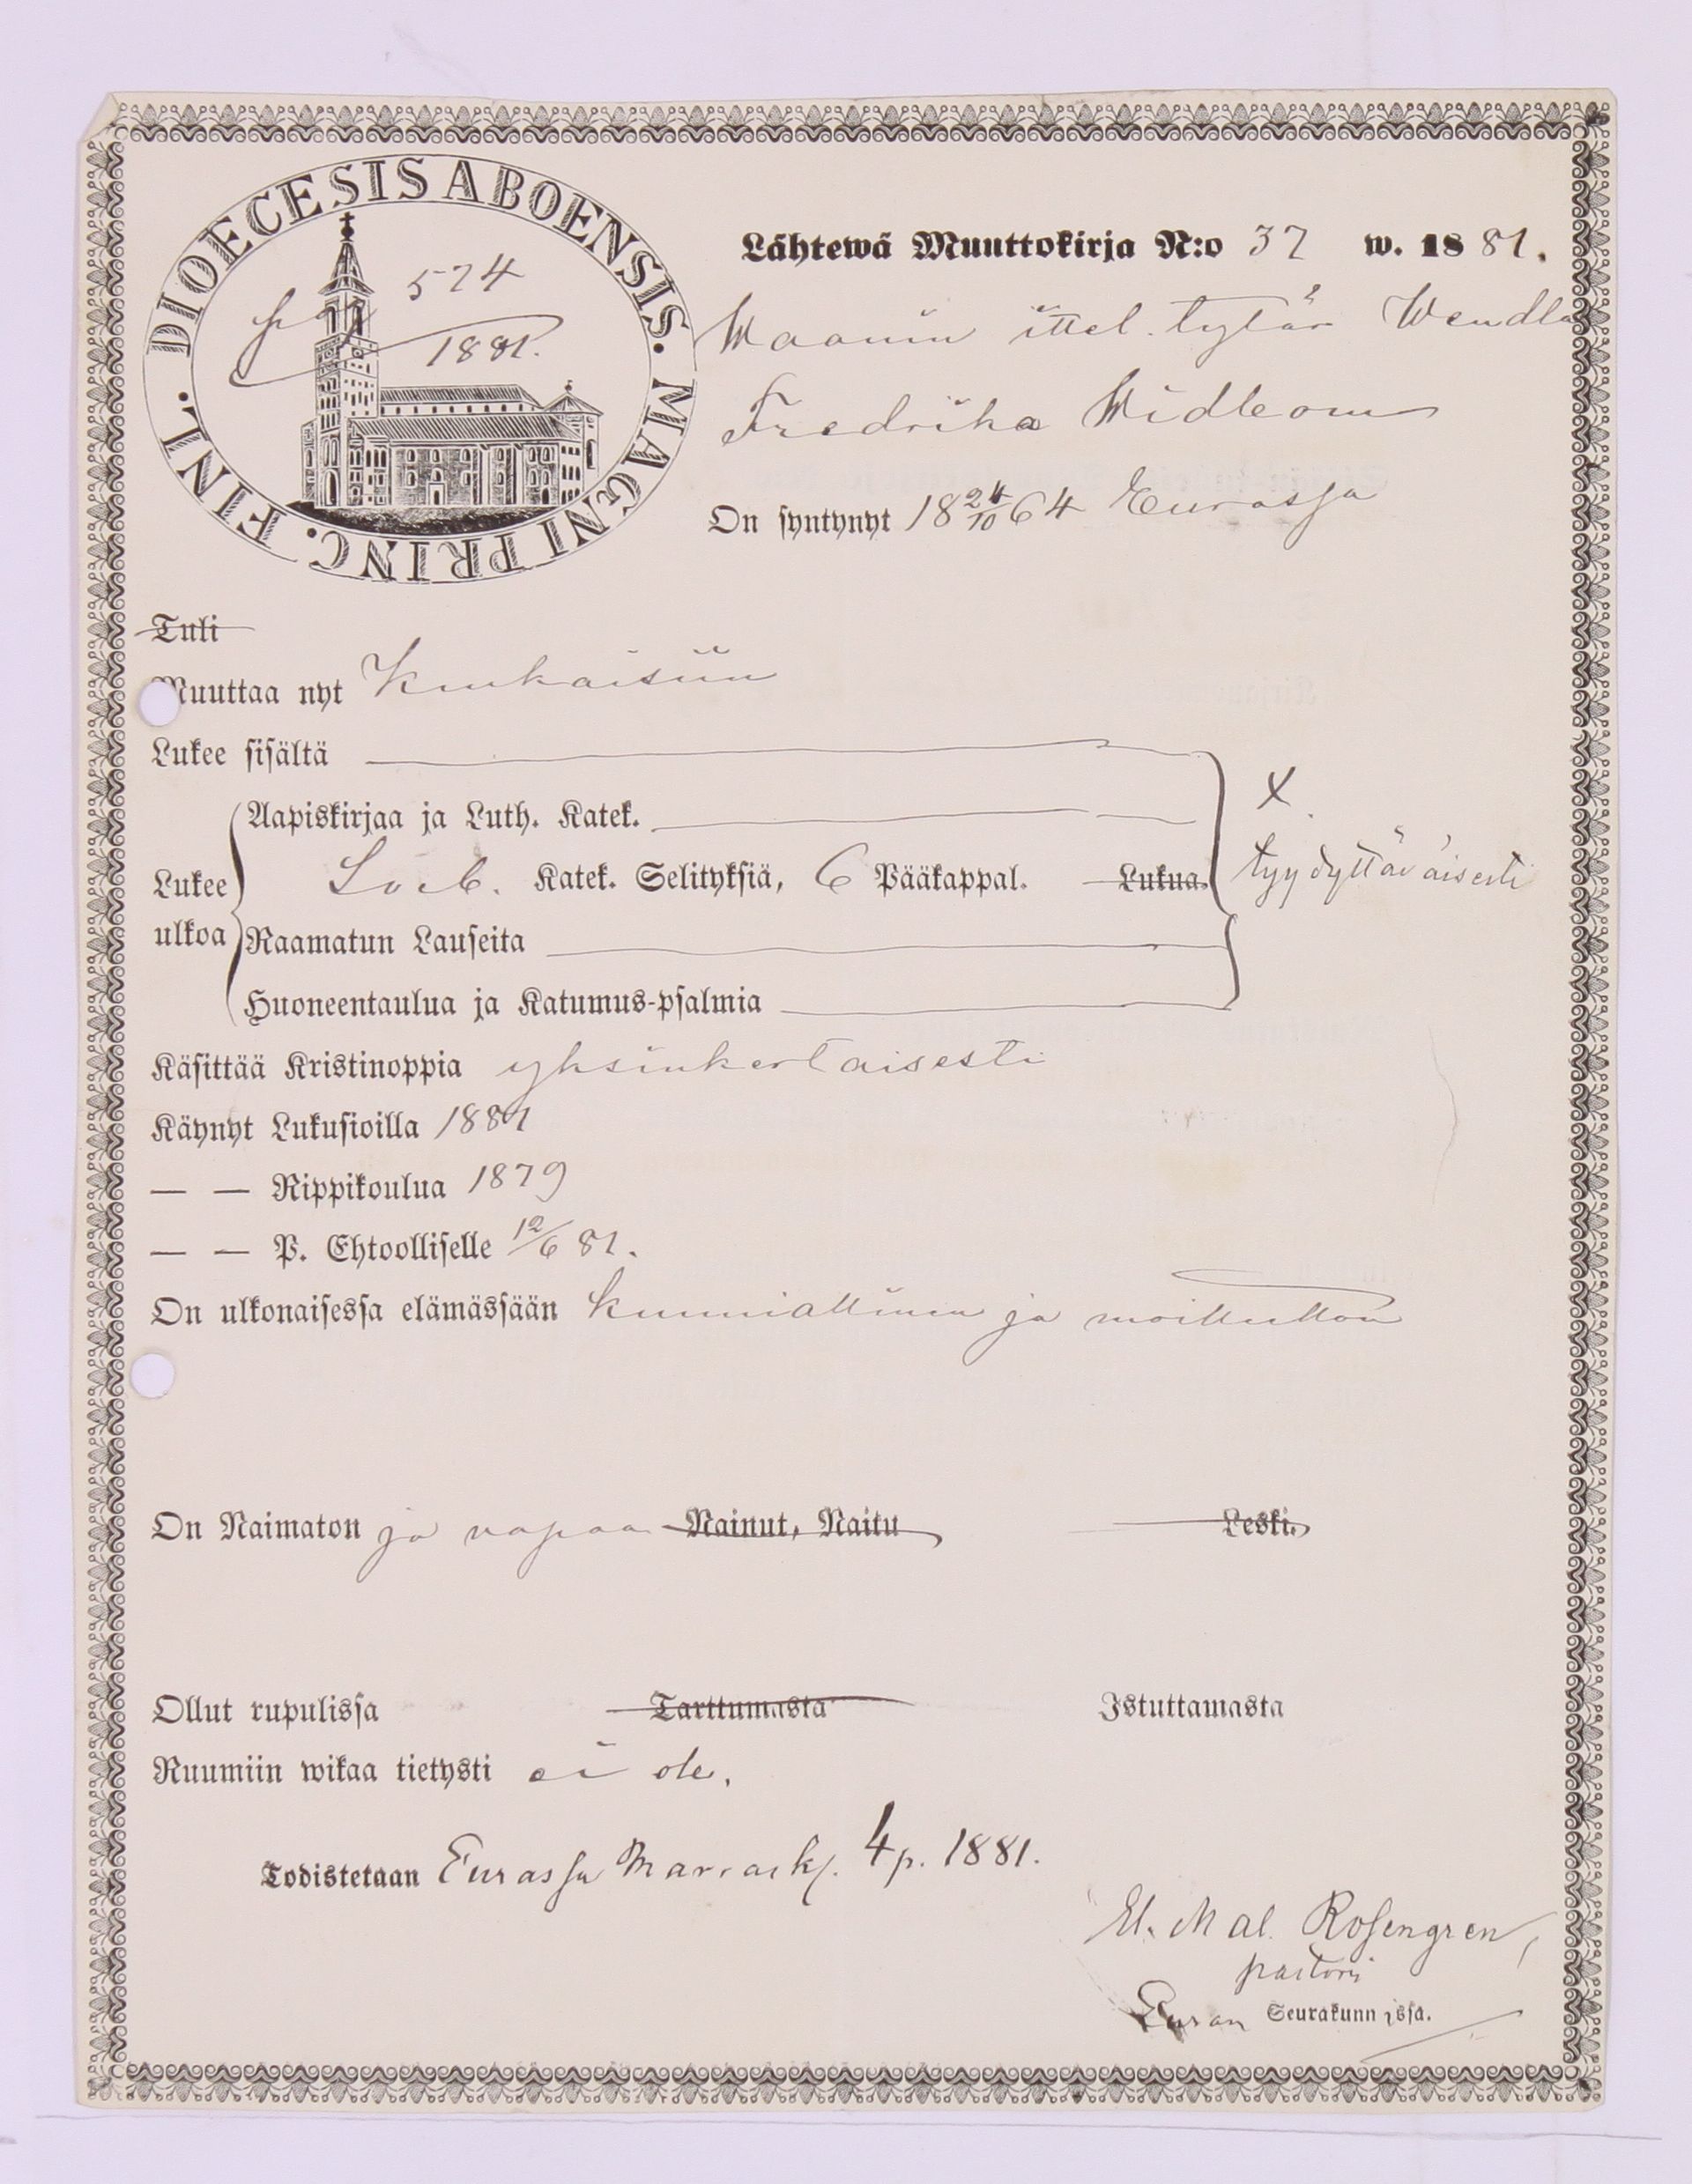 DIOECESIS ABOENSIS. MAGNI PRINC. FINL.
pag 574
1881.
Lähtewä Muuttokirja N:o 37 w. 1881.
Waarin ittel. tytär Wendla
Fredrika Widbom
On syntynyt 18 24/10 64 Eurassa
Tuli
Muuttaa nyt Kiukaisiin
Lukee sisältä
Lukee ulkoa
Aapiskirjaa ja Luth. Katek.
Katek. Selityksiä, 6 Pääkappal. Lukua.
Raamatun Lauseita
Huoneentaulua ja Katumus-psalmia
x
tyydyttäväisesti
Käsittää Kristinoppia yksinkertaisesti
Käynyt Lukusioilla 1881
— — Rippikoulua 1879
— — P. Ehtoolliselle 12/6 81.
On ulkonaisessa elämässään kunniallinen ja moitteeton
On Naimaton ja vapaa Nainut, Naitu Leski.
Ollut rupulissa Tarttumasta Istuttamasta
Ruumiin wikaa tietysti ei ole.
Todistetaan Eurassa Marrask. 4 p. 1881.
Rosengren,
pastori
Euran Seurakunnissa.